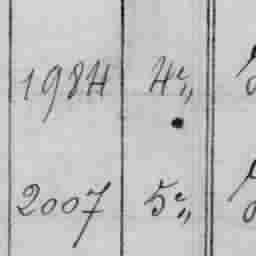 1984 4 "
2007 5 "